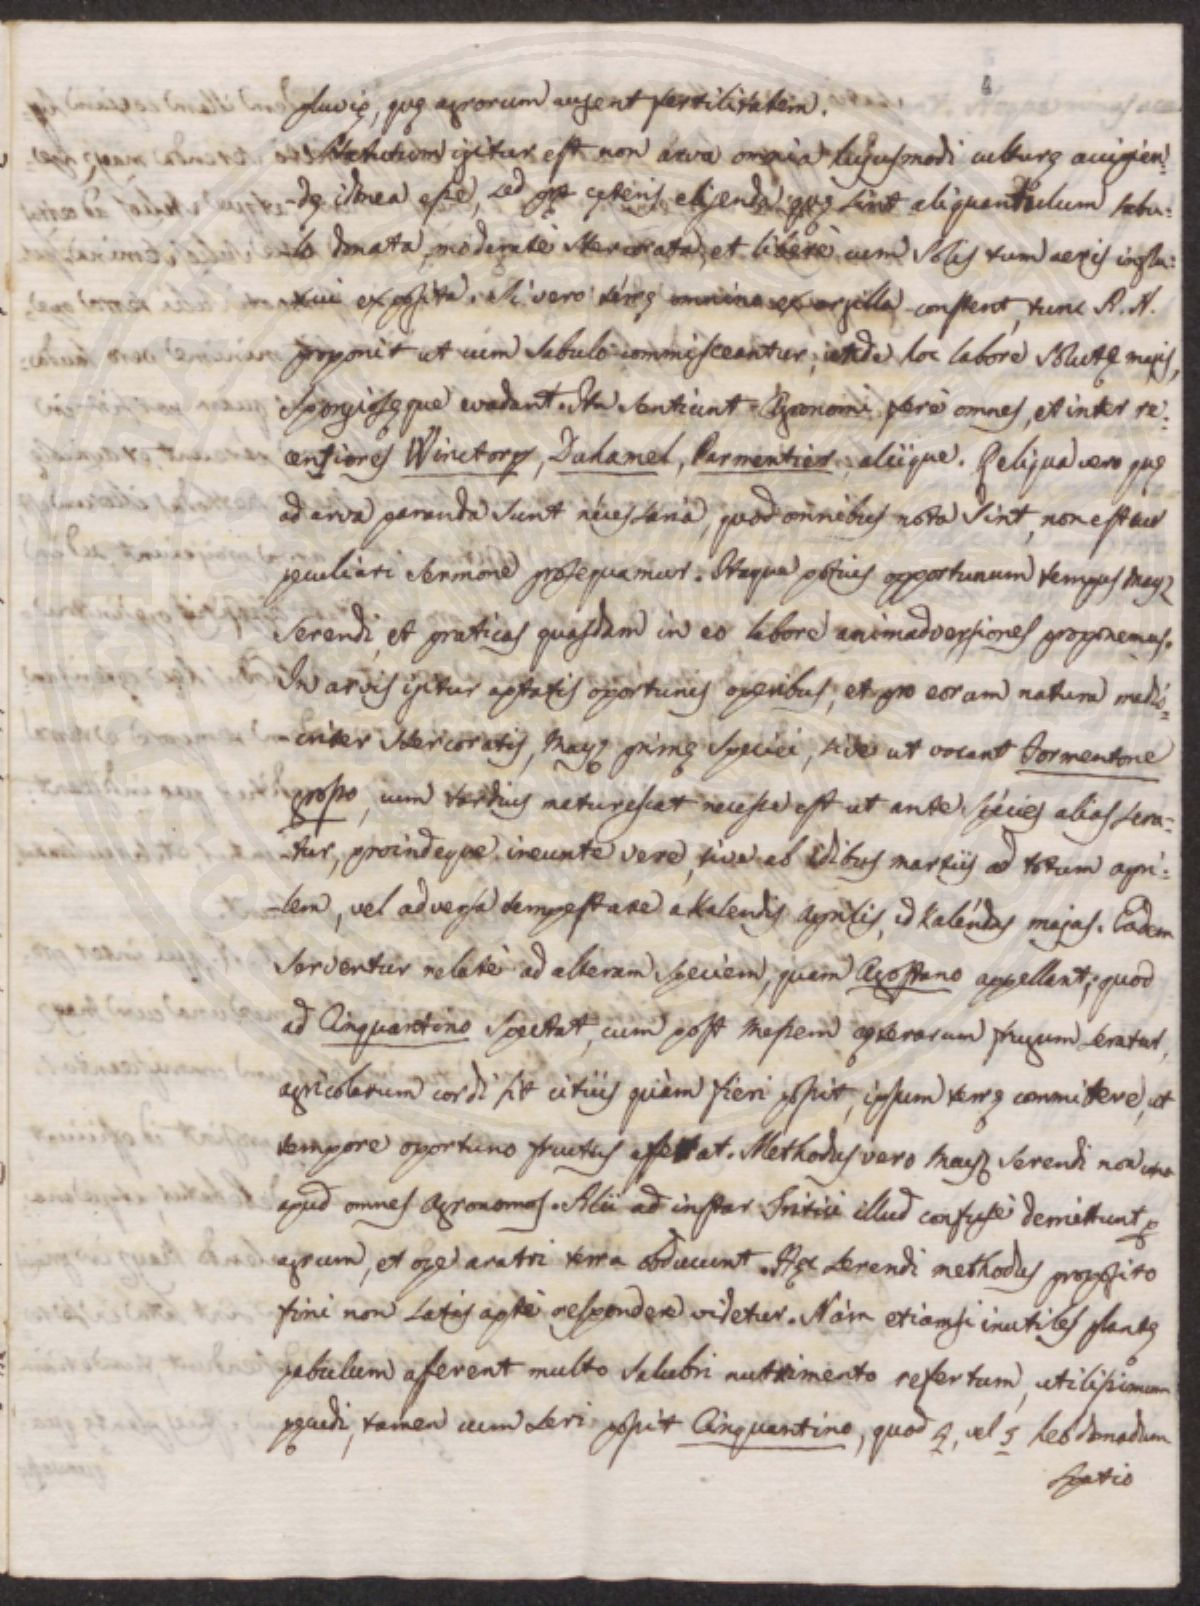 pluvię, quę agrorum augent fertilitatem.
Statutum igitur est non arva omnia hujusmodi culturę accipien=
-dę idonea esse, sed prę cęteris eligenda, quę sint aliquantulum sabu=
-lo donata, moderatè stercorata, et liberè cum Solis tum aeris influ=
-xui exposita. Si vero terrę omnino ex argilla constent, tunc A. N.
proponit ut cum sabulo commisceantur, unde hoc labore solutę magis,
spongiosęque evadant. Ita sentiunt Agronomi ferè omnes, et inter re=
centiores Winctorp, Duhamel, Parmentier, aliique. Reliqua vero quę
ad arva paranda sunt necessaria, quod omnibus nota sint, non est cur
peculiari sermone prosequamur. Itaque potius opportunum tempus Mayz
serendi, et praticas quasdam in eo labore animadversiones proponemus.
In arvis igitur aptatis oportunis operibus, et pro eorum natura medio=
-criter stercoratis, Mayz primę speciei, sive ut vocant Formentone
grosso, cum tardius maturescat necesse est ut ante species alias sera=
-tur, proindeque ineunte vere, sive ab Idibus martiis ad totum apri=
-lem, vel adversa tempestate a Kalendis Aprilis, ad Kalendas majas. Eadem
serventur relatè ad alteram speciem, quam Agostano appellant; quod
ad Cinquantino spectat, cum post messem cęterarum frugum seratur,
agricolarum cordi sit citius quàm fieri possit, ipsum terrę committere, ut
tempore oportuno fructus afferat. Methodus vero Mayz serendi non una
apud omnes Agronomos. Alii ad instar Tritici illud confusè demittunt p
agrum, et ope aratri terra obducunt. Hęc serendi methodus proposito
fini non satis aptè respondere videtur. Nam etiamsi inutiles plantę
pabulum afferent multo salubri nutrimento refertum, utilissimum
pecudi, tamen cum seri possit Cinquantino, quod 4, vel 5 hebdomadum
spatio